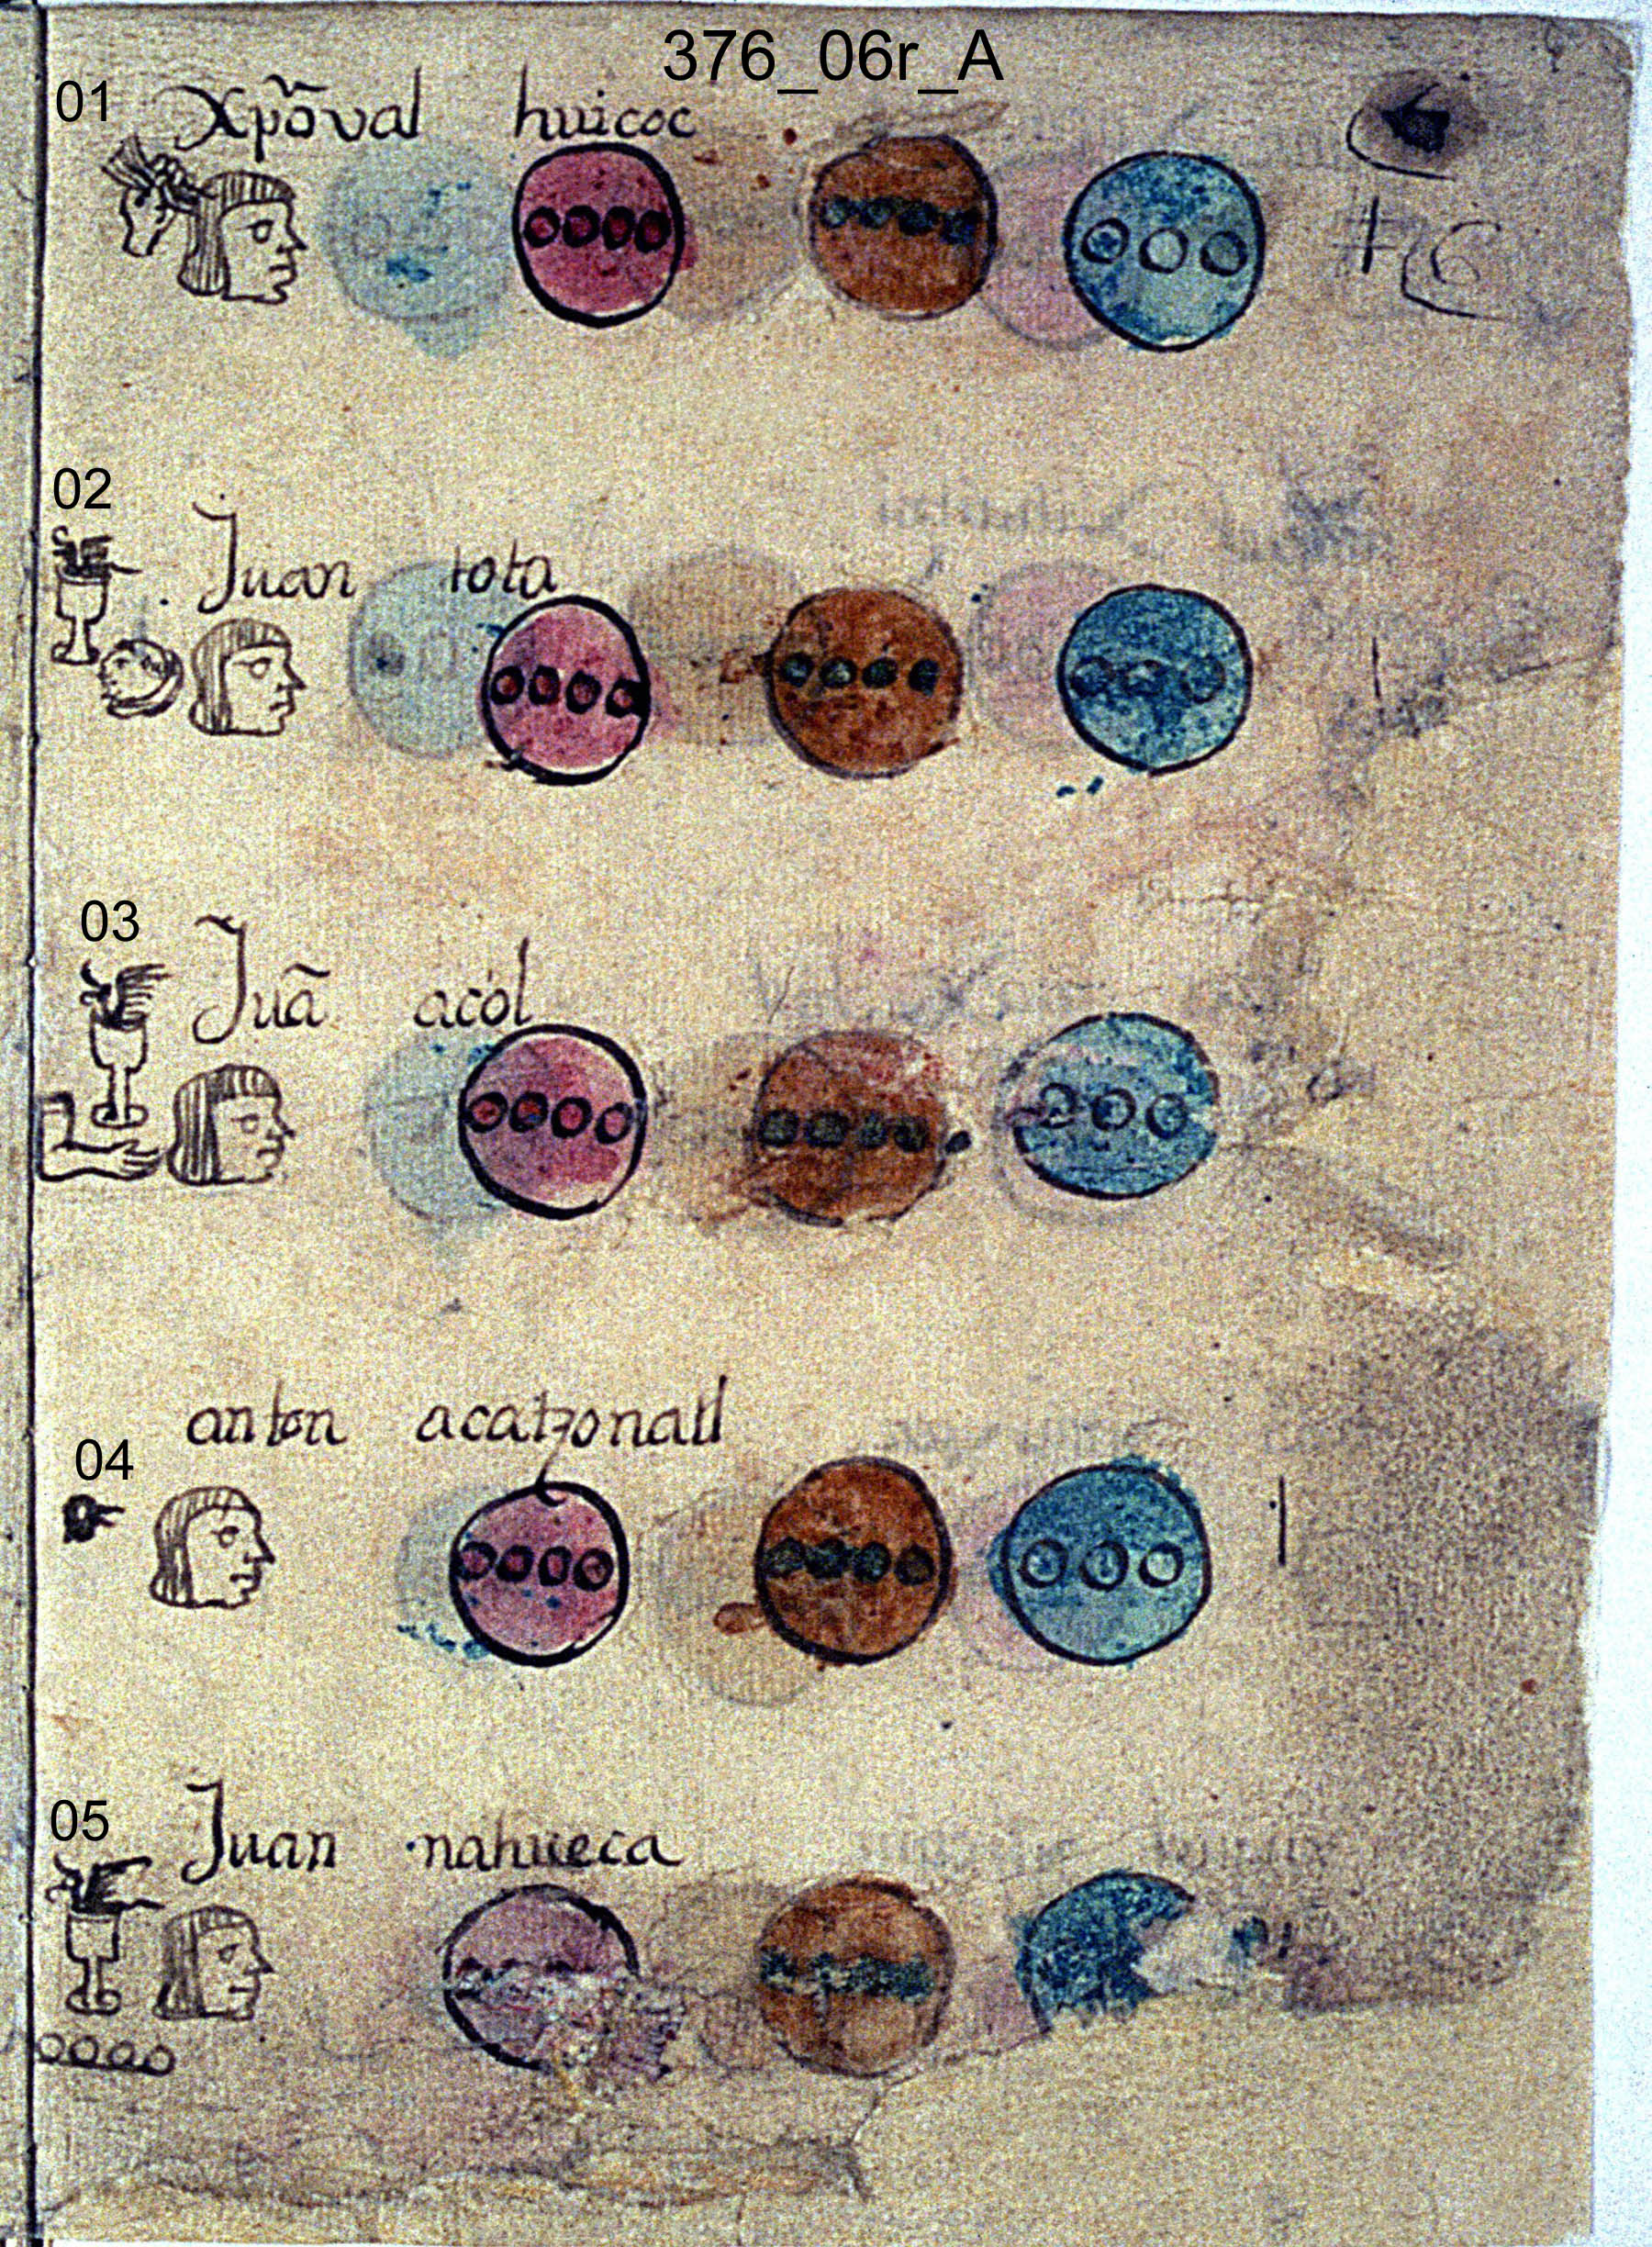 376_06r_A
01
xp̃oval huicoc
02
Juan tota
03
Juã acol
04
anton acatzonatl
05
Juan nahueca